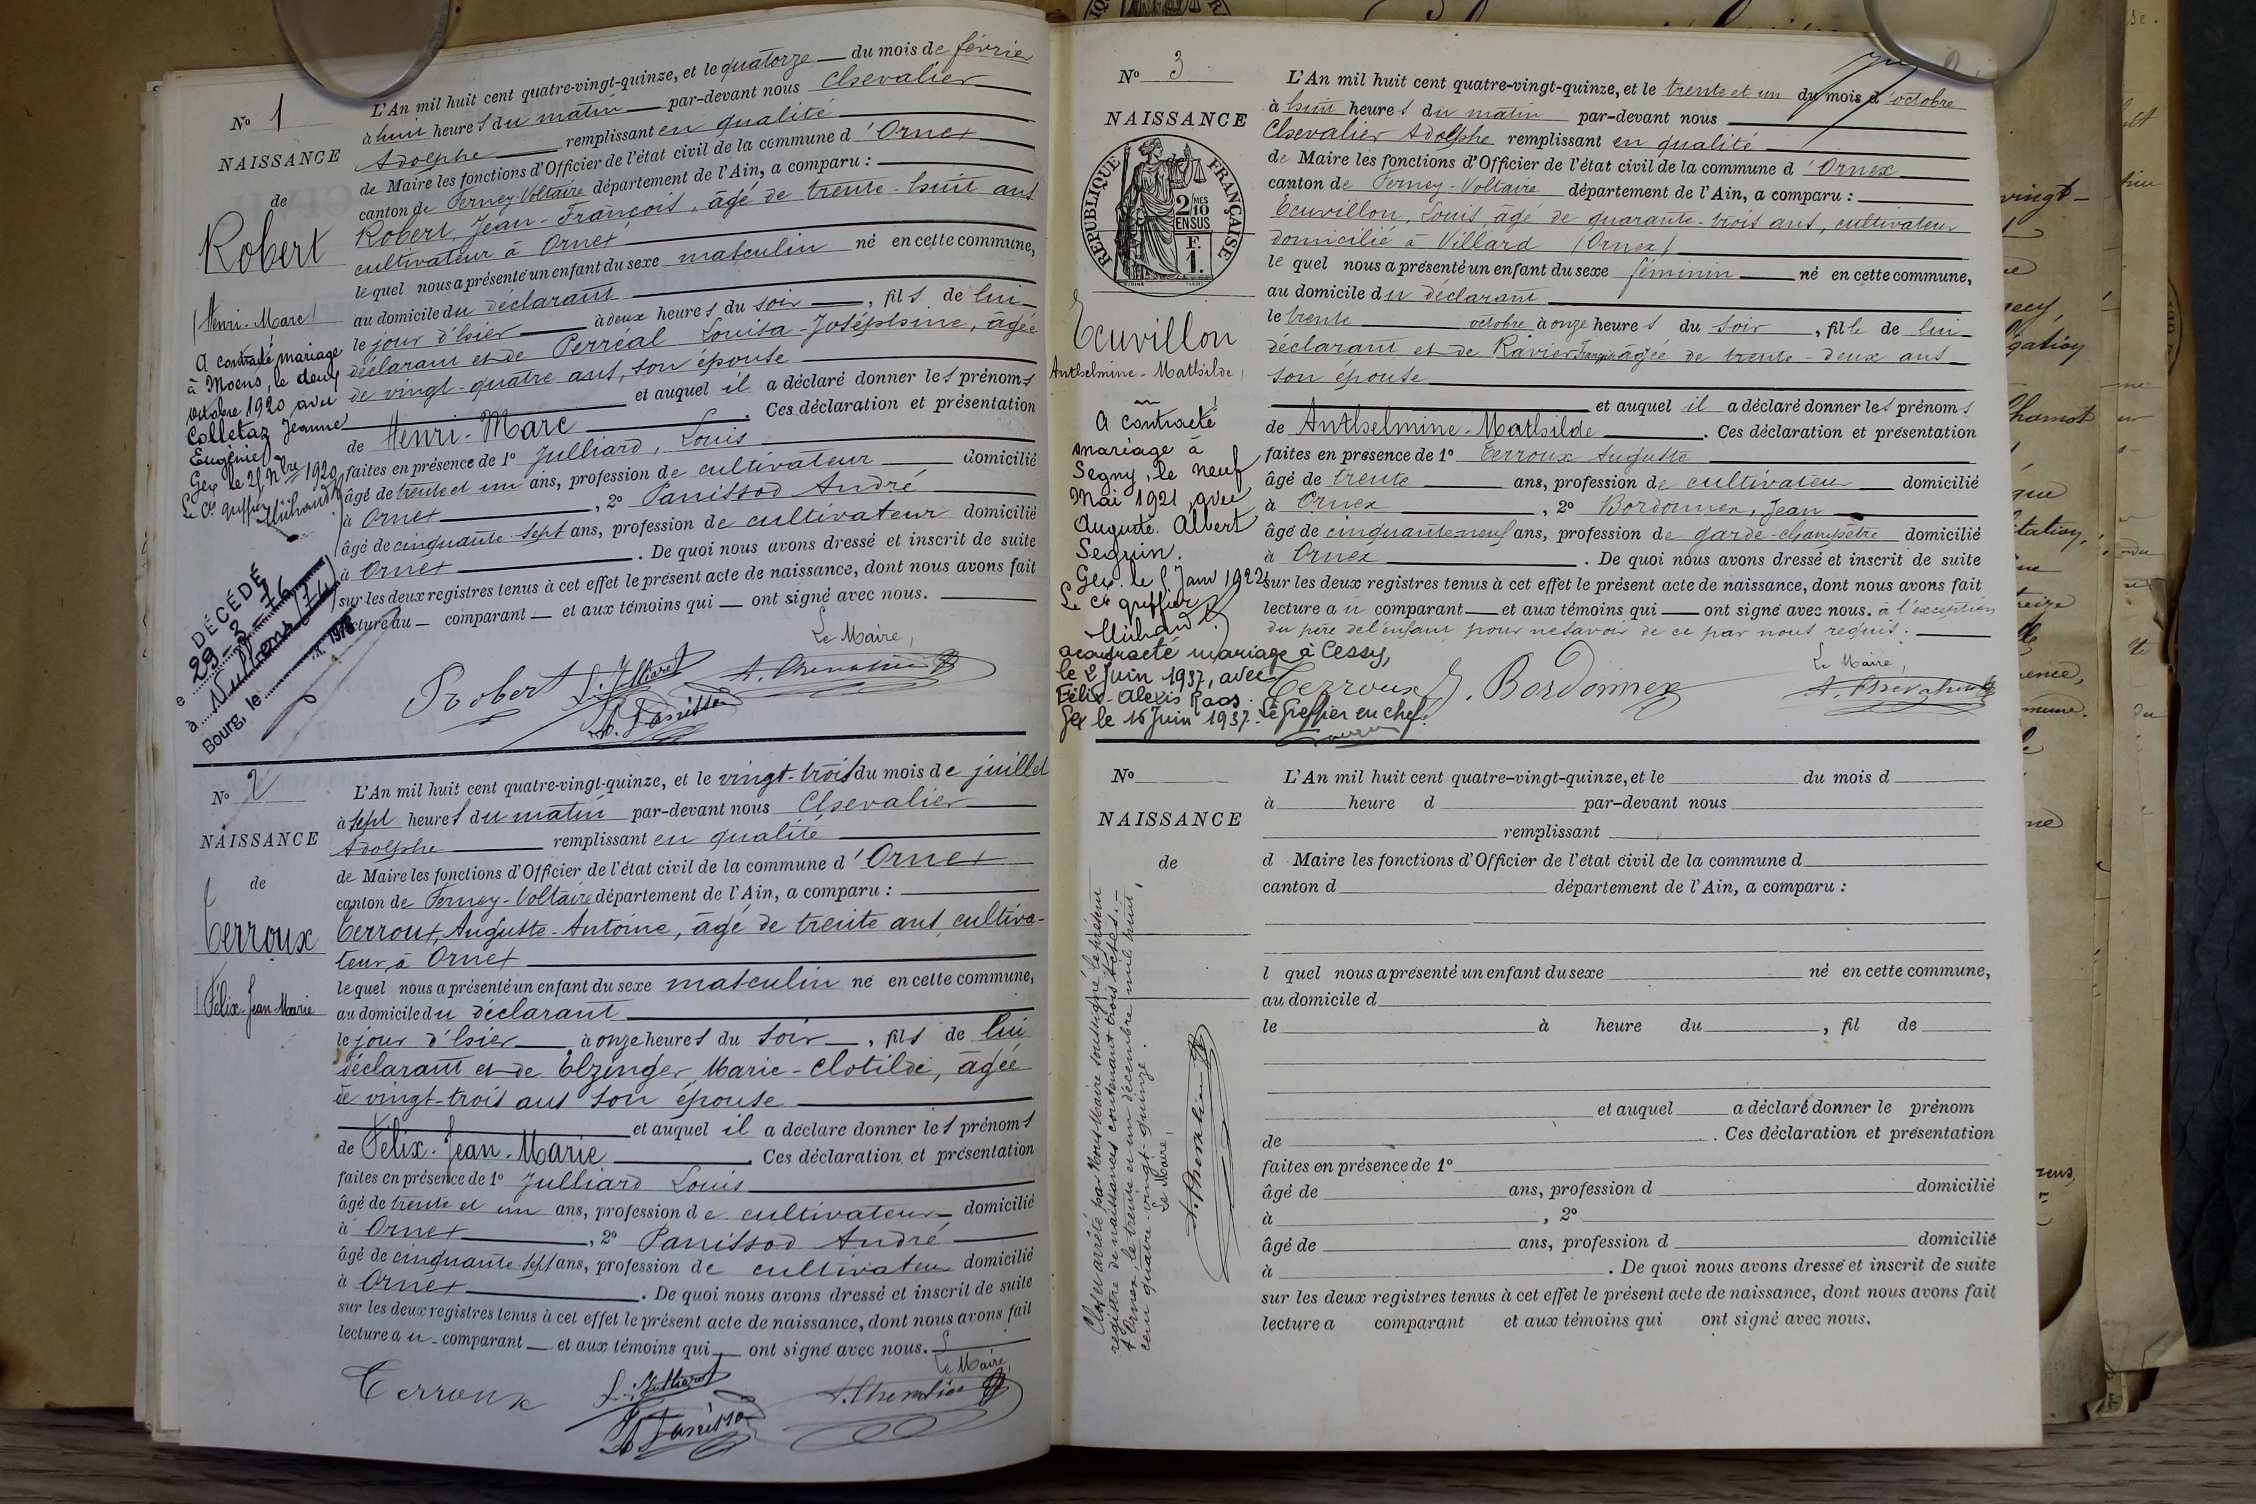 N° 1
NAISSANCE
de
Robert
(Henri-Marc)
A contracté mariage
à Moens, le deux
octobre 1920 avec
Colletaz Jeanne
Eugénie
Gex le 25 Nbre 1920
Le Cs greffier
DÉCÉDÉ
e 29-2-76
à
Bourg, le 1976
L'An mil huit cent quatre-vingt-quinze, et le quatorze du mois de février
à huit heures du matin par-devant nous Chevalier
Adolphe remplissant en qualité
de Maire les fonctions d'Officier de l'état civil de la commune d'Ornex
canton de Ferney-Voltaire département de l'Ain, a comparu :
Robert, Jean-François, âgé de trente-huit ans
cultivateur à Ornex
lequel nous a présenté un enfant du sexe masculin né en cette commune,
au domicile du déclarant
le jour d'hier à deux heures du soir, fils de lui
déclarant et de Perréal Louisa-Joséphine, âgée
de vingt-quatre ans, son épouse
et auquel il a déclaré donner les prénoms
de Henri-Marc. Ces déclaration et présentation
faites en présence de 1° Julliard, Louis
âgé de trente et un ans, profession de cultivateur domicilié
à Ornex, 2° Panissod André
âgé de cinquante-sept ans, profession de cultivateur domicilié
à Ornex. De quoi nous avons dressé et inscrit de suite
sur les deux registres tenus à cet effet le présent acte de naissance, dont nous avons fait
lecture au comparant et aux témoins qui ont signé avec nous.
Le Maire,
Robert L. Julliard A. Chevalier
A. Panissod
N° 2
NAISSANCE
de
Terroux
(Félix-Jean-Marie
L'An mil huit cent quatre-vingt-quinze, et le vingt-trois du mois de juillet
à sept heures du matin par-devant nous Chevalier
Adolphe remplissant en qualité
de Maire les fonctions d'Officier de l'état civil de la commune d'Ornex
canton de Ferney-Voltaire département de l'Ain, a comparu :
Terroux, Auguste-Antoine, âgé de trente ans, cultiva-
teur, à Ornex
lequel nous a présenté un enfant du sexe masculin né en cette commune,
au domicile du déclarant
le jour d'hier à onze heures du soir, fils de lui
déclarant et de Elzinger, Marie-Clotilde, âgée
de vingt-trois ans son épouse
et auquel il a déclaré donner les prénoms
de Félix-Jean-Marie. Ces déclaration et présentation
faites en présence de 1° Julliard Louis
âgé de trente et un ans, profession de cultivateur domicilié
à Ornex, 2° Panissod André
âgé de cinquante sept ans, profession de cultivateur domicilié
à Ornex. De quoi nous avons dressé et inscrit de suite
sur les deux registres tenus à cet effet le présent acte de naissance, dont nous avons fait
lecture au comparant et aux témoins qui ont signé avec nous.
Le Maire,
Terroux L. Julliard A. Chevalier
A. Panissod
N° 3
NAISSANCE
RÉPUBLIQUE FRANÇAISE
2/10 MES
EN SUS
F.
1.
Ecuvillon
Anthelmine-Mathilde
A contracté
mariage à
Segny, le neuf
Mai 1921, avec
Auguste Albert
Seguin.
Gex, le 5 Janv 1922
Le Cs greffier
a contracté mariage à Cessy,
le 2 Juin 1937, avec
Félix-Alexis Raos.
Gex le 16 Juin 1937. Le Greffier en chef.
L'An mil huit cent quatre-vingt-quinze, et le trente et un du mois d'octobre
à huit heures du matin par-devant nous
Chevalier Adolphe remplissant en qualité
de Maire les fonctions d'Officier de l'état civil de la commune d'Ornex
canton de Ferney-Voltaire département de l'Ain, a comparu :
Ecuvillon, Louis âgé de quarante-trois ans, cultivateur
domicilié à Villard (Ornex)
le quel nous a présenté un enfant du sexe féminin né en cette commune,
au domicile du déclarant
le trente octobre à onze heures du soir, fille de lui
déclarant et de Ravier Françoise âgée de trente-deux ans
son épouse
et auquel il a déclaré donner les prénoms
de Anthelmine-Mathilde. Ces déclaration et présentation
faites en présence de 1° Terroux Auguste
âgé de trente ans, profession de cultivateur domicilié
à Ornex, 2° Bordonnex, Jean
âgé de cinquante-neuf ans, profession de garde-champêtre domicilié
à Ornex. De quoi nous avons dressé et inscrit de suite
sur les deux registres tenus à cet effet le présent acte de naissance, dont nous avons fait
lecture au comparant et aux témoins qui ont signé avec nous. à l'exception
du père de l'enfant pour ne savoir de ce par nous requis.
Le Maire,
Terroux J. Bordonnex A. Chevalier
N°
NAISSANCE
de
L'An mil huit cent quatre-vingt-quinze, et le du mois d
à heure d par-devant nous
remplissant
d Maire les fonctions d'Officier de l'état civil de la commune d
canton d département de l'Ain, a comparu :
l quel nous a présenté un enfant du sexe né en cette commune,
au domicile d
le à heure du, fil de
et auquel a déclaré donner le prénom
de. Ces déclaration et présentation
faites en présence de 1°
âgé de ans, profession d domicilié
à, 2°
âgé de ans, profession d domicilié
à. De quoi nous avons dressé et inscrit de suite
sur les deux registres tenus à cet effet le présent acte de naissance, dont nous avons fait
lecture a comparant et aux témoins qui ont signé avec nous.
Clos et arrêté par Nous Maire soussigné le présent
registre de naissances contenant trois actes.
A Ornex, le trente et un décembre mil huit
cent quatre-vingt-quinze.
Le Maire,
A. Chevalier